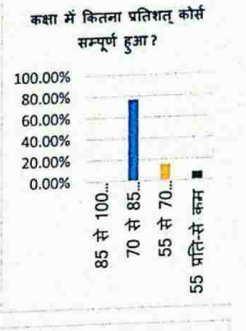 कक्षा में कितना प्रतिशत् कोर्स
सम्पूर्ण हुआ?
100.00%
80.00%
60.00%
40.00%
20.00%
0.00%
85 से 100...
70 से 85...
55 से 70...
55 प्रति-से कम